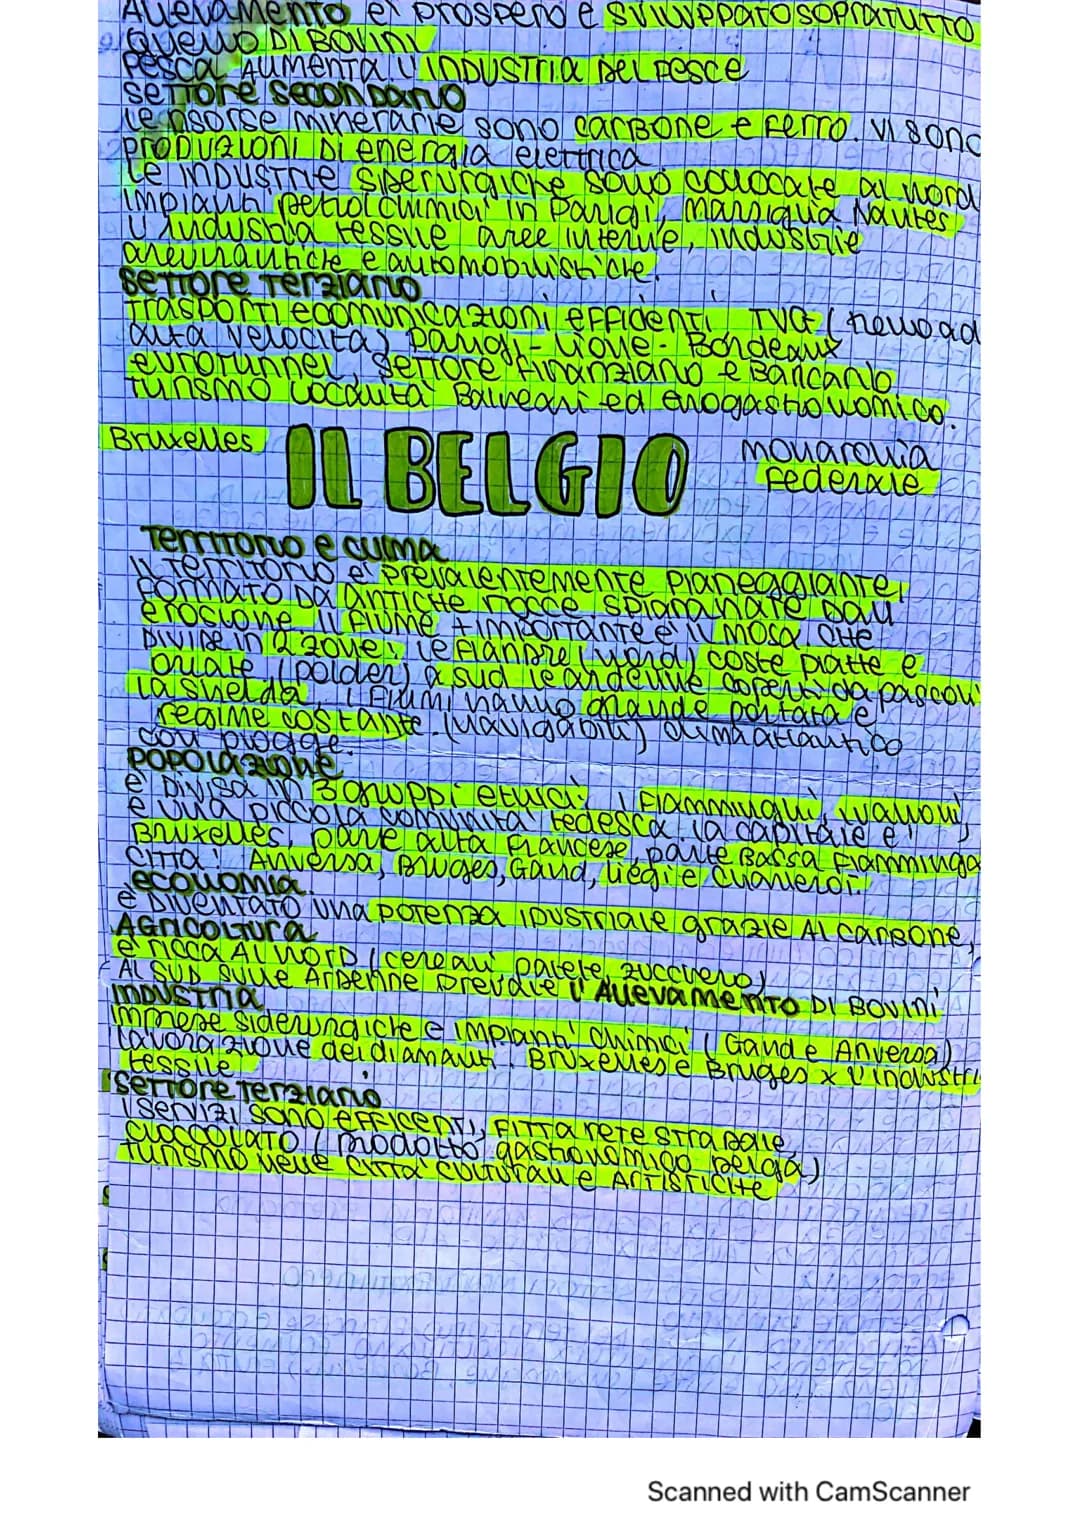 Allevamento e' prospero e sviluppato sopratutto
quello di bovini
Pesca aumenta l'industria del pesce
settore secondario
le risorse minerarie sono carbone e ferro. vi sono
produzioni di energia elettrica
Le industrie siderurgiche sono collocate al nord
impianti petrolchimici in Parigi, Marsiglia Nantes
l'industria tessile aree interne, industrie
areunautiche e automobilistiche.
settore terziario
trasporti e comunicazioni efficienti TVG (
alta velocità) Parigi-Lione-Bordeaux
eurotunnel, settore finanziario e bancario
turismo località balneari ed enogastronomico.
Bruxelles
IL BELGIO
monarquia
federale
Territorio e clima
il territorio e' prevalentemente pianeggiante,
formato da antiche rocce spianate dall'
erosione il fiume + importante è il Mosa. che
divide in 2 zone: le Fiandre (nord) coste piatte e
(polder) a sud le ardenne coperti da pascoli
la Shelda. i fiumi hanno grande portata e
regime costante. (navigabili) clima atlantico
con piogge.
popolazione
e' divisa in 3 gruppi etnici: i fiamminghi, valloni,
e una piccola comunità tedesca la capitale e'
Bruxelles, parte alta francese, parte bassa fiamminga
città: Anversa, Bruges, Gand, Liegi e Charleroi.
economia.
è diventato una potenza idustriale grazie al carbone,
Agricoltura
e' ricca al nord (cereali patete, zucchero)
Al sud sulle Ardenne prevale l'Allevamento di bovini
industria
immese siderurgiche e impianti chimici (Gand e Anversa)
lavorazione dei diamanti. Bruxelles e Bruges x l'industri
tessile
settore terziario
i servizi sono efficenti, fitta rete stradale,
cioccolato (prodotto gastronomico belga)
turismo nelle città culturali e artistiche
Scanned with CamScanner